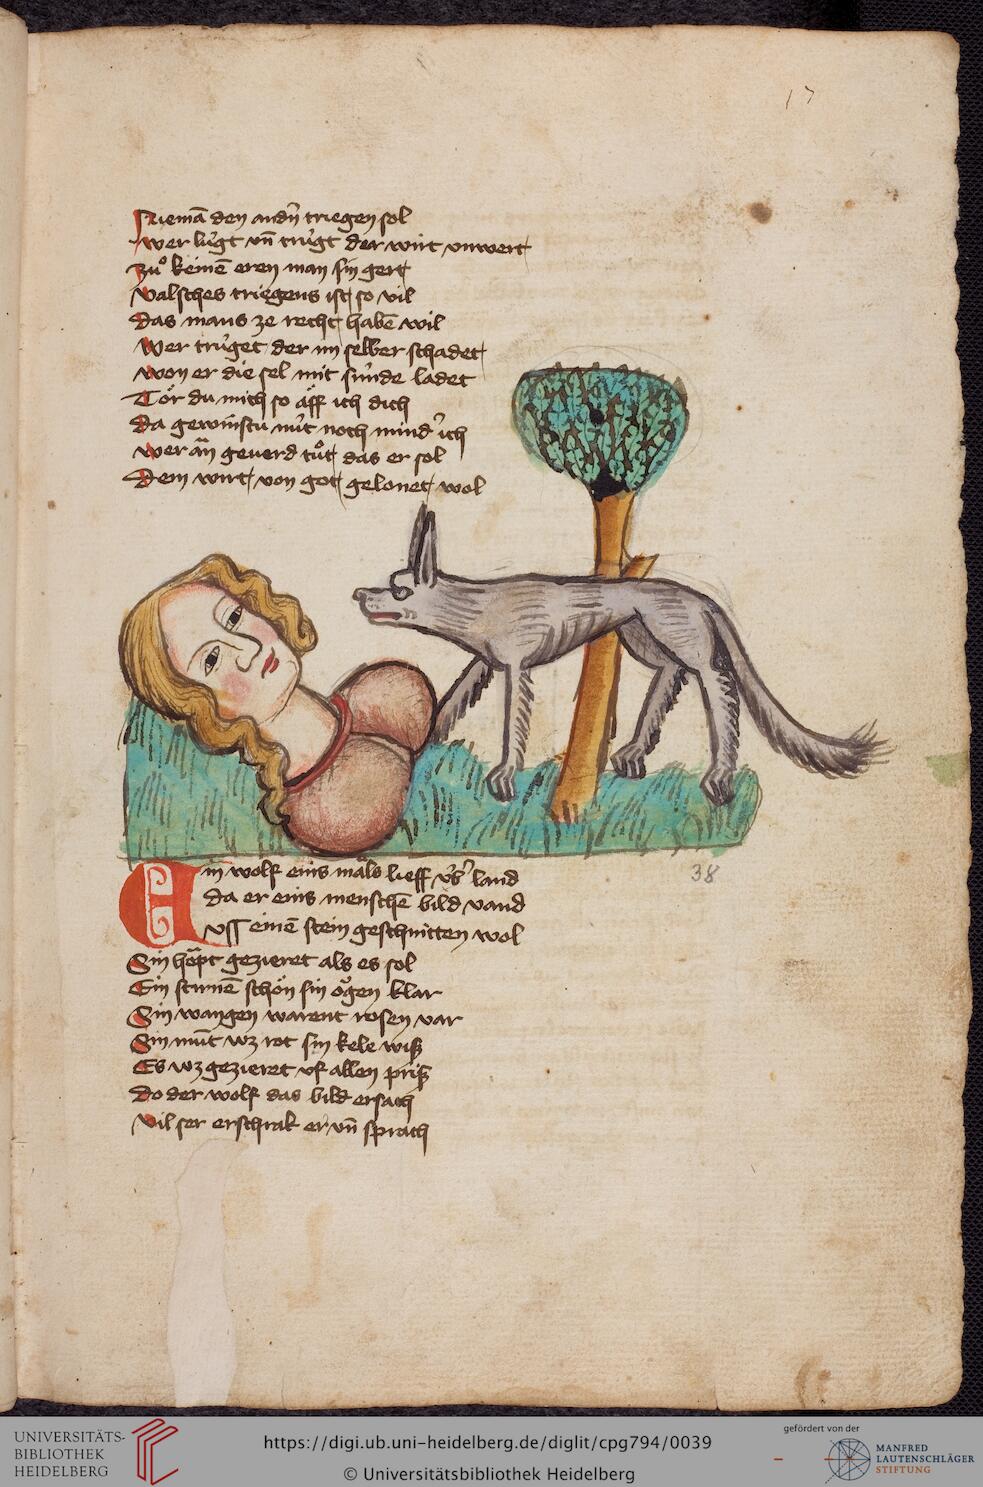 17
Niemā den andn̄ triegen sol
Wer lúgt vn̄ trúgt der wirt vnwert
Zuͦ keinē eren man sin gert
Valsches triegens ist so vil
Das mans ze recht habē wil
Wer trúget der im selber schadet
Won er die sel mit súnde ladet
Tör du mich so äff ich dich
Da gewinstu nút noch minder ich
Wer ān geuerd tuͦt das er sol
Dem wirt von got gelonet wol
38
Ein wolf eins mǎls lieff v́ber land
Da er eins menschē bild vand
Vss einē stein geschnitten wol
Sin hǒpt gezieret als es sol
Ein stirnē schön sin ǒgen klar
Sin wangen warent rosen var
Sin mūt wz rot sin kele wiß
Es wz gezieret vf allen priß
Do der wolf das bild ersach
Vil ser erschrak er vn̄ sprach
UNIVERSITÄTS-
BIBLIOTHEK
HEIDELBERG
https://digi.ub.uni-heidelberg.de/diglit/cpg794/0039
© Universitätsbibliothek Heidelberg
gefördert von der
MANFRED
LAUTENSCHLÄGER
STIFTUNG